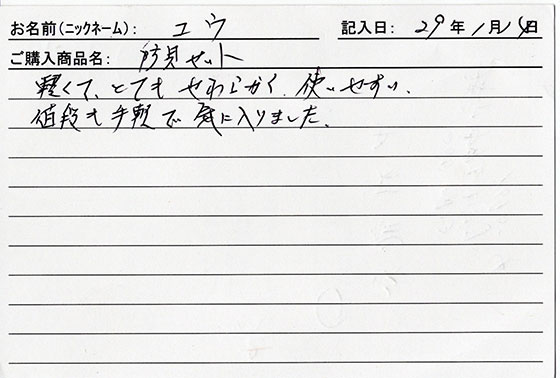 お名前(ニックネーム): ユウ 記入日: 29年 1月 日
ご購入商品名: 防具セット
軽くて、とても やわらかく、使いやすい.
値段も手軽で 気に入りました.